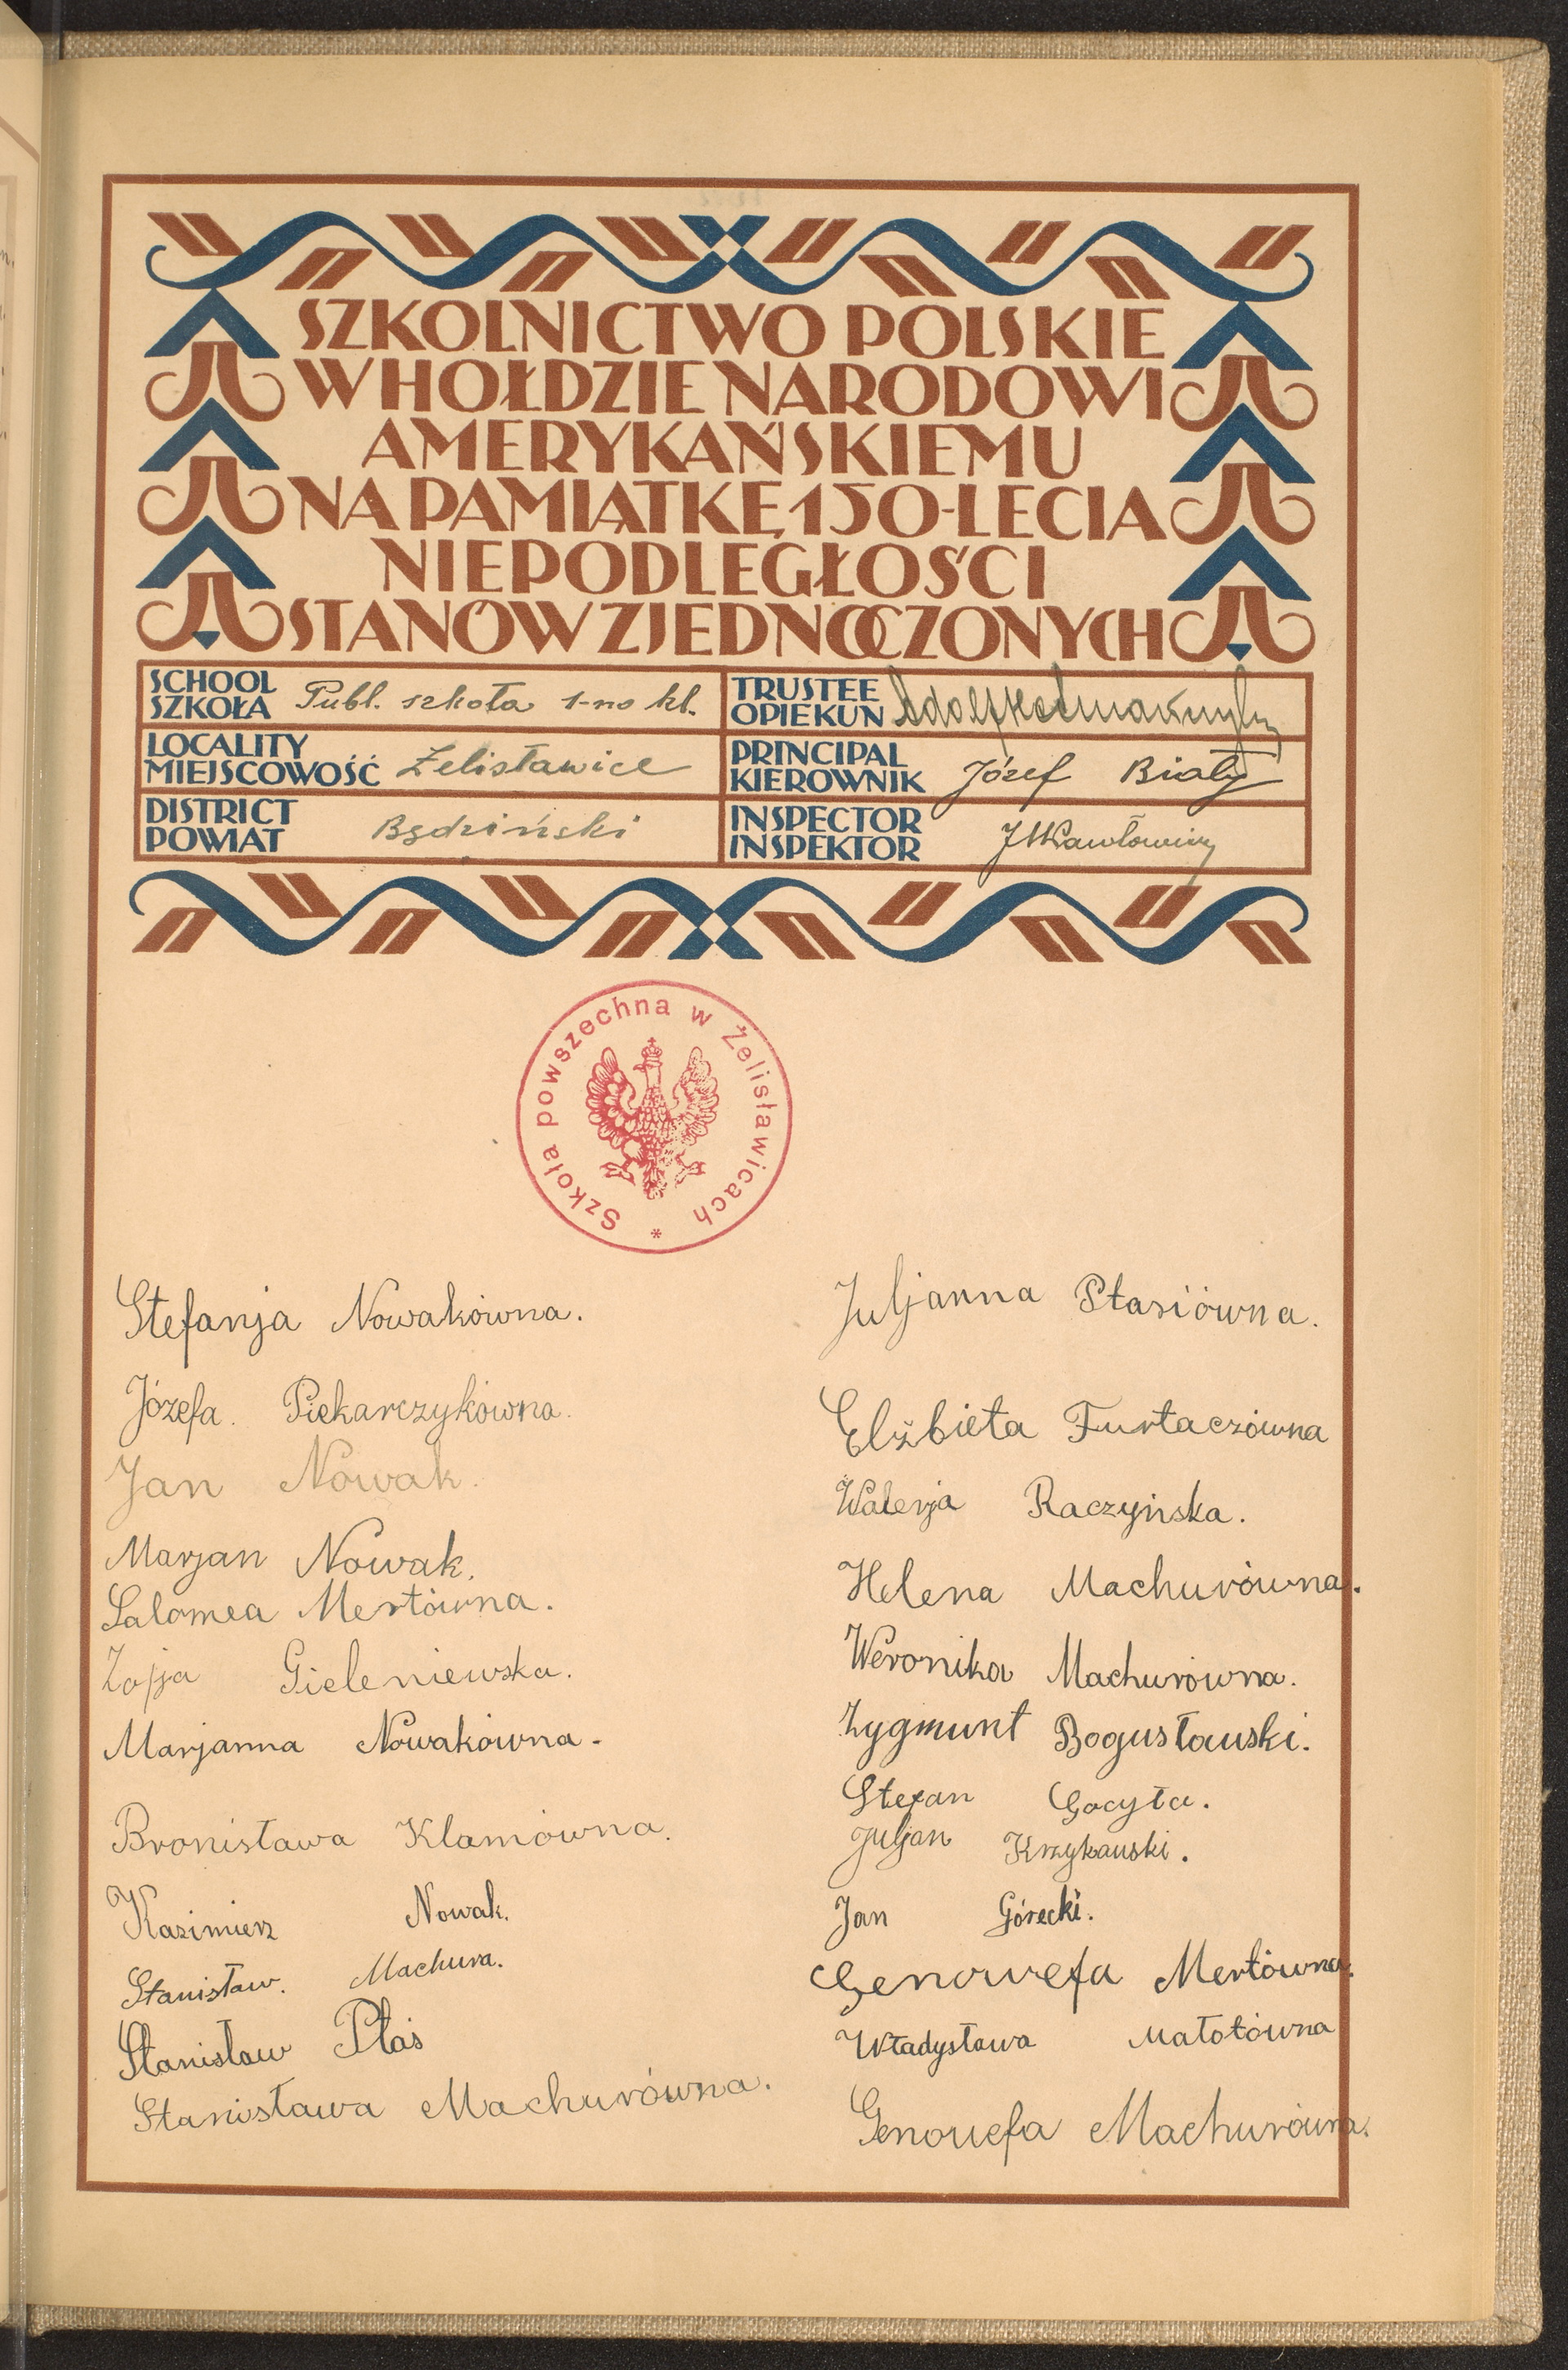 SZKOLNICTWO POLSKIE
W HOŁDZIE NARODOWI
AMERYKAŃSKIEMU
NA PAMIĄTKĘ 150-LECIA
NIEPODLEGŁOŚCI
STANÓW ZJEDNOCZONYCH
SCHOOL
SZKOŁA
Publ. szkoła 1-no kl.
TRUSTEE
OPIEKUN
Adolf
LOCALITY
MIEJSCOWOŚĆ
Żelisławice
PRINCIPAL
KIEROWNIK
Józef Biały
DISTRICT
POWIAT
Będziński
INSPECTOR
INSPEKTOR
Szkoła powszechna w Żelisławicach *
Stefanja Nowakówna.
Józefa. Piekarczykówna.
Jan Nowak.
Marjan Nowak.
Salomea Mertówna.
Zofja Gieleniewska.
Marjanna Nowakówna.
Bronisława Klamówna.
Kazimierz Nowak.
Stanisław. Machura.
Stanisław Ptaś
Stanisława Machurówna.
Juljanna Ptasiówna.
Elżbieta Furtaczówna
Walerja Raczyńska.
Helena Machurówna.
Weronika Machurówna.
Zygmunt Bogusławski.
Stefan Gocyła.
Juljan Krzykawski.
Jan Górecki.
Genowefa Mertówna.
Władysława Małotówna
Genowefa Machurówna.